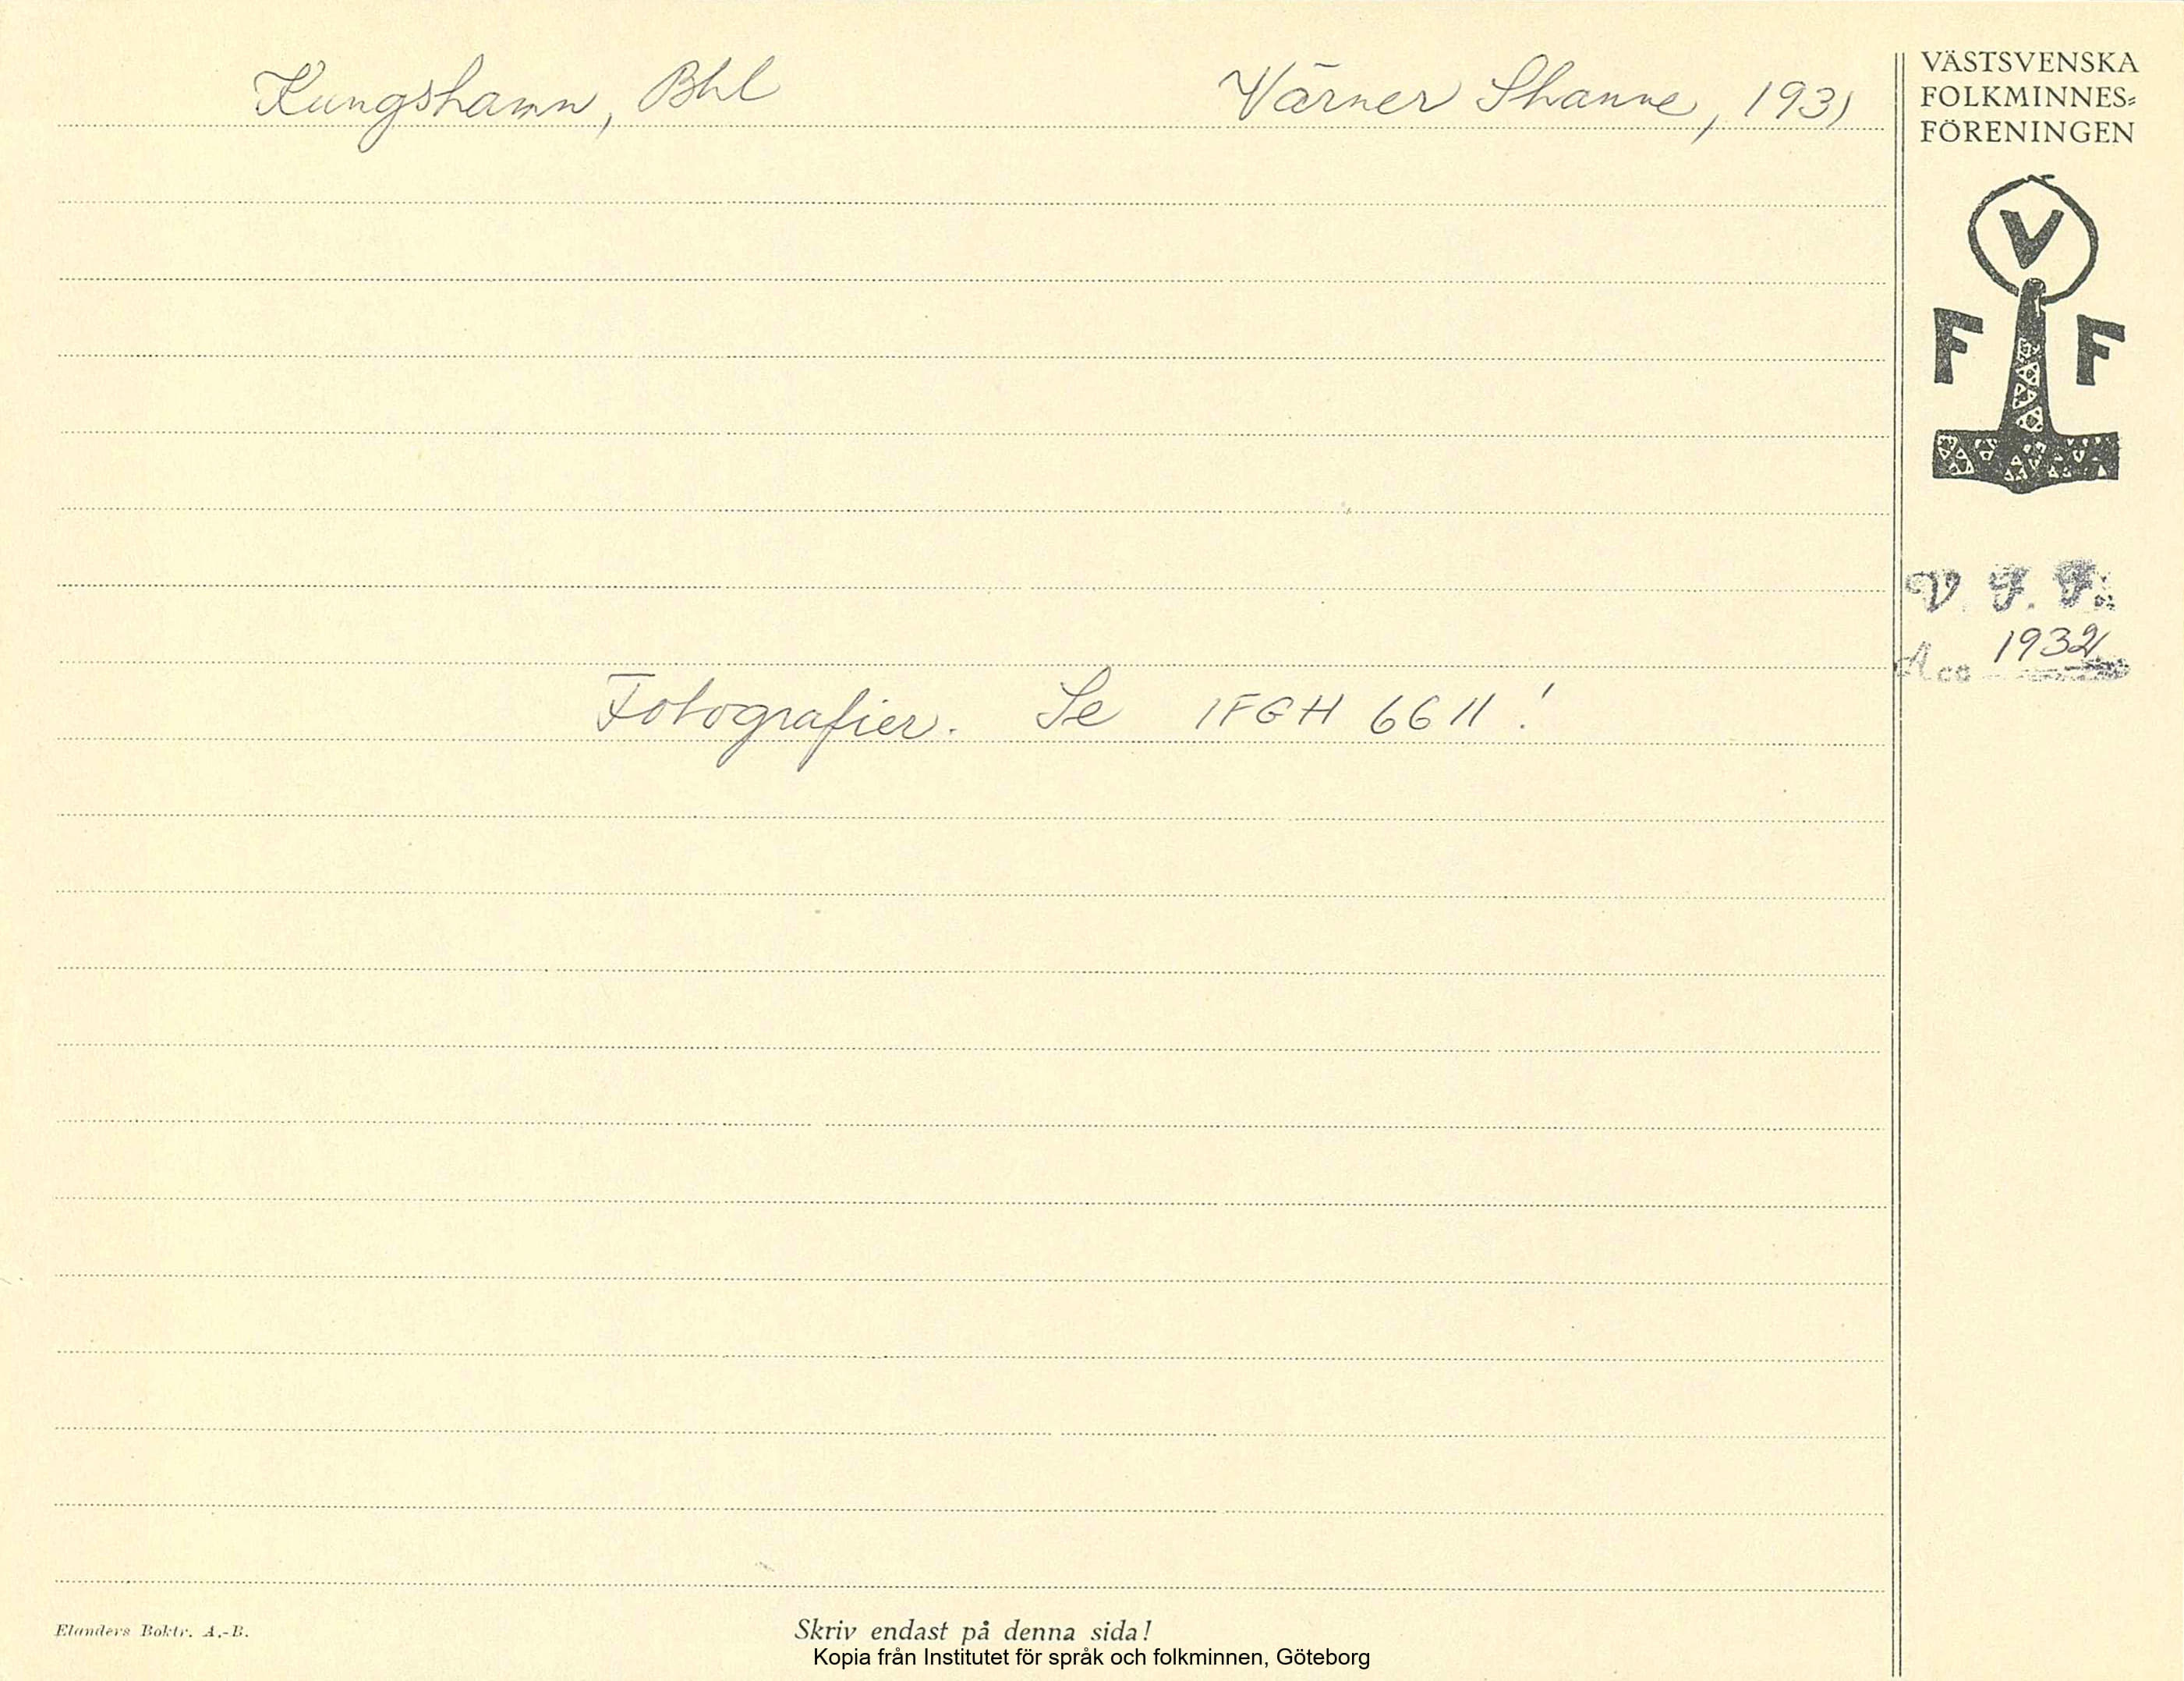 Kungshamn, Bhl Värner Shanne, 1931
VÄSTSVENSKA
FOLKMINNES=
FÖRENINGEN
V
F F
V. F. F.
Acc 1932
Fotografier. Se IFGH 6611!
Elanders Boktr. A.-B.
Skriv endast på denna sida!
Kopia från Institutet för språk och folkminnen, Göteborg